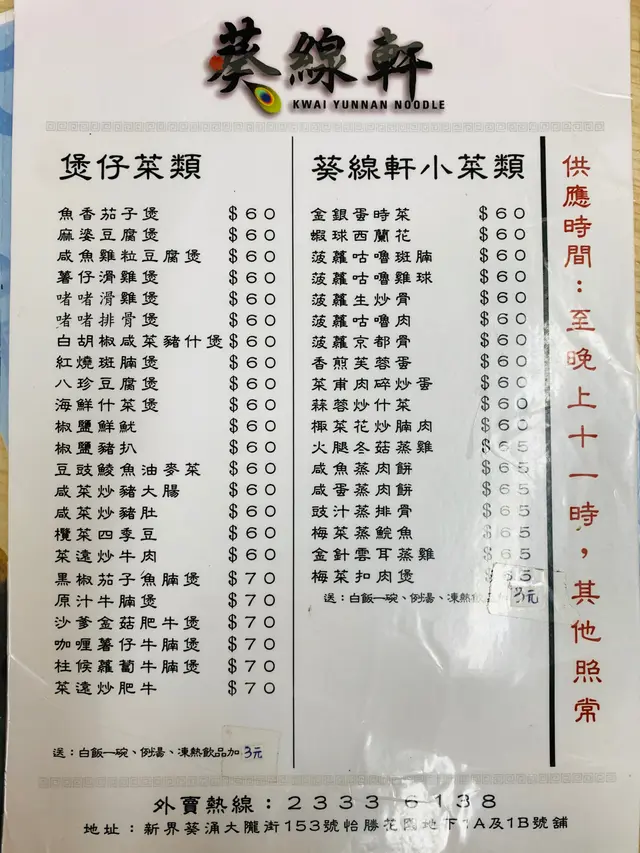 葵線軒
KWAI YUNNAN NOODLE
煲仔菜類
魚香茄子煲 $60
麻婆豆腐煲 $60
咸魚雞粒豆腐煲 $60
薯仔滑雞煲 $60
啫啫滑雞煲 $60
啫啫排骨煲 $60
白胡椒咸菜豬什煲 $60
紅燒斑腩煲 $60
八珍豆腐煲 $60
海鮮什菜煲 $60
椒鹽鮮魷 $60
椒鹽豬扒 $60
豆豉鯪魚油麥菜 $60
咸菜炒豬大腸 $60
咸菜炒豬肚 $60
欖菜四季豆 $60
菜遠炒牛肉 $60
黑椒茄子魚腩煲 $70
原汁牛腩煲 $70
沙爹金菇肥牛煲 $70
咖喱薯仔牛腩煲 $70
柱候蘿蔔牛腩煲 $70
菜遠炒肥牛 $70
送：白飯一碗、例湯、凍熱飲品加3元
葵線軒小菜類
金銀蛋時菜 $60
蝦球西蘭花 $60
菠蘿咕嚕斑腩 $60
菠蘿咕嚕雞球 $60
菠蘿生炒骨 $60
菠蘿咕嚕肉 $60
菠蘿京都骨 $60
香煎芙蓉蛋 $60
菜甫肉碎炒蛋 $60
蒜蓉炒什菜 $60
椰菜花炒腩肉 $60
火腿冬菇蒸雞 $65
咸魚蒸肉餅 $65
咸蛋蒸肉餅 $65
豉汁蒸排骨 $65
梅菜蒸鯇魚 $65
金針雲耳蒸雞 $65
梅菜扣肉煲 $65
送：白飯一碗、例湯、凍熱飲品加3元
供應時間：至晚上十一時，其他照常
外賣熱線：2333 6138
地址：新界葵涌大隴街153號怡勝花園地下1A及1B號舖